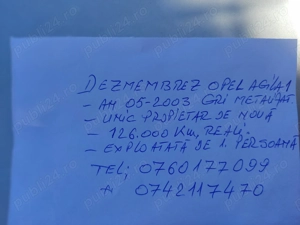 DEZMEMBREZ OPEL AGILA 1
- AN 05-2003 GRI METALIZAT.
- UNIC PROPIETAR DE NOUĂ
- 126.000 Km, REALI.
- EXPLOATATĂ DE 1. PERSOANĂ
TEL; 0760177099
+ 0742117470